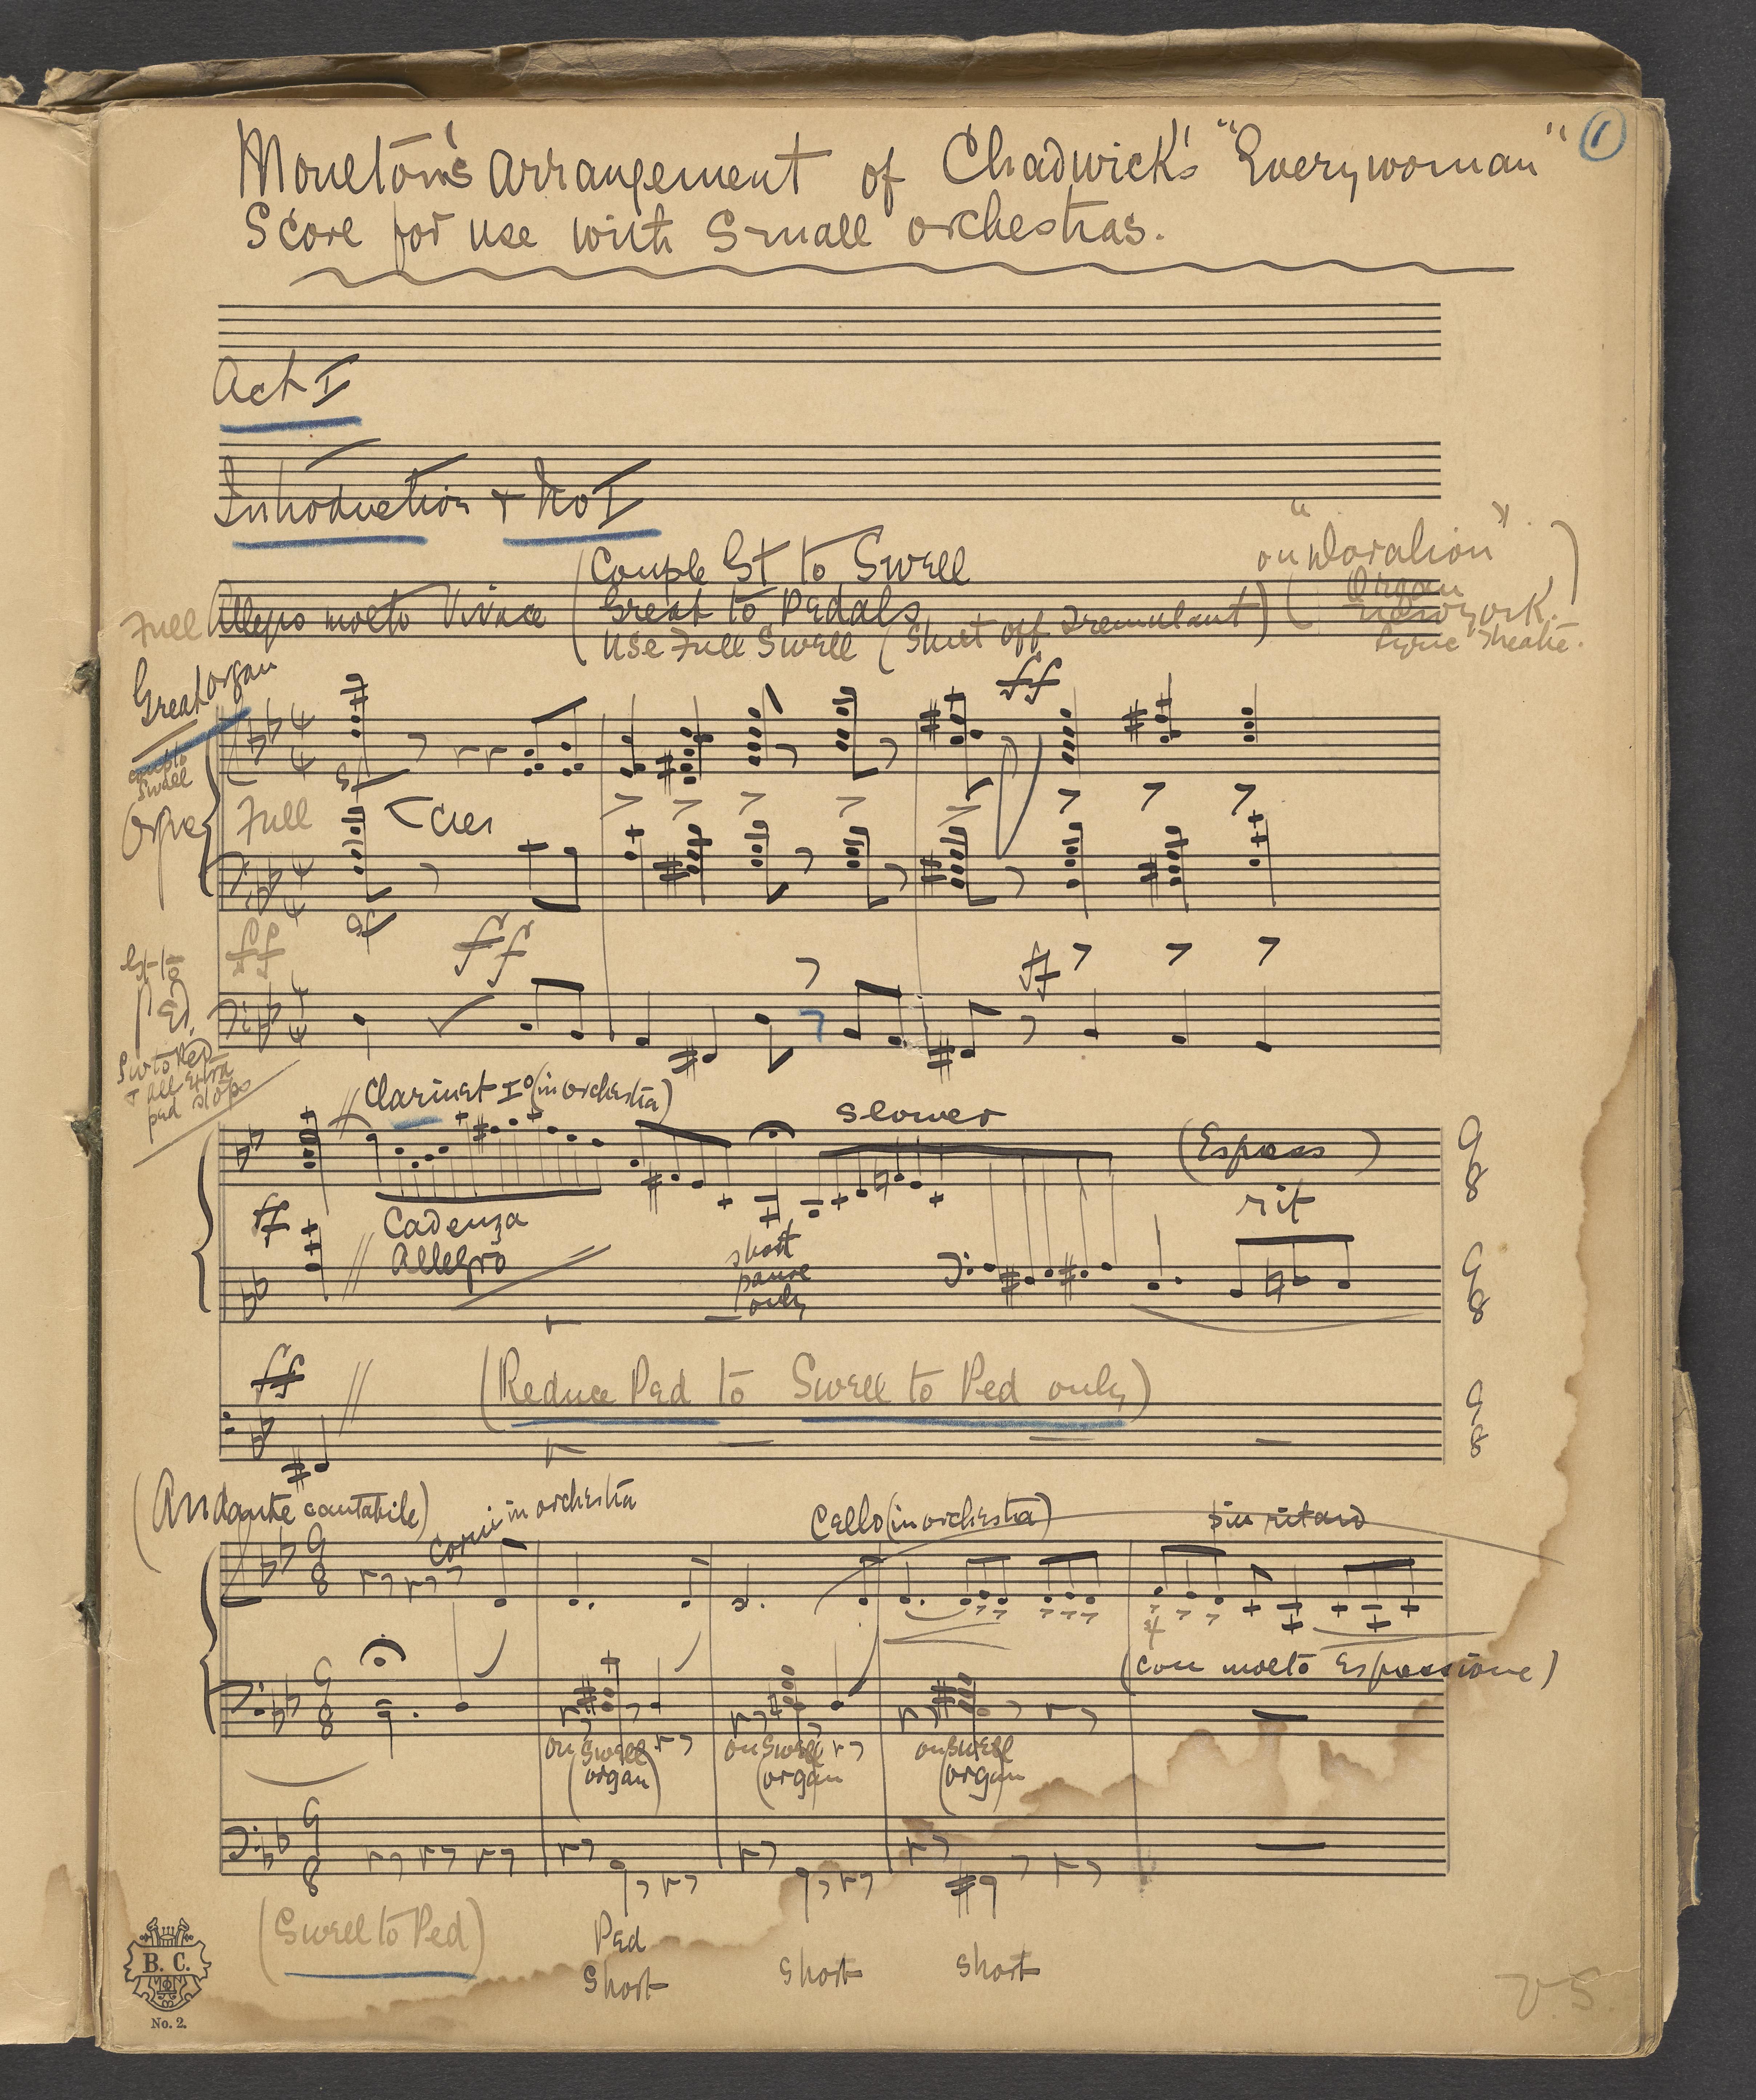 Moulton's arrangement of Chadwick's "Everywoman" 1
Score for use with Small orchestras.
Act I
Introduction + No I
Couple Gt to Swell
Great to Pedals
Use Full Swell (Shut off Tremulant)
on
Organ
New York.
Lyric Theatre.
Full Allegro molto Vivace
Great organ
coup to
Swell
Full
cres
sf
ff
sf
ff
ff
ff
Gt to
Ped.
Sw to Ped
+ all extra
ped stops
Clarinet Io (in orchestra)
slower
(Espress)
rit
ff
Cadenza
Allegro
short
pause
only
ff
(Reduce Ped to Swell to Ped only)
(Andante cantabile)
Corni in orchestra
Cello (in orchestra)
sin ritard
(con molto Espressione)
on Swell
(organ)
on Swell
(organ
on Swell
(organ
(Swell to Ped)
Ped
Short
Short
Short
V.S.
B. C.
No. 2.